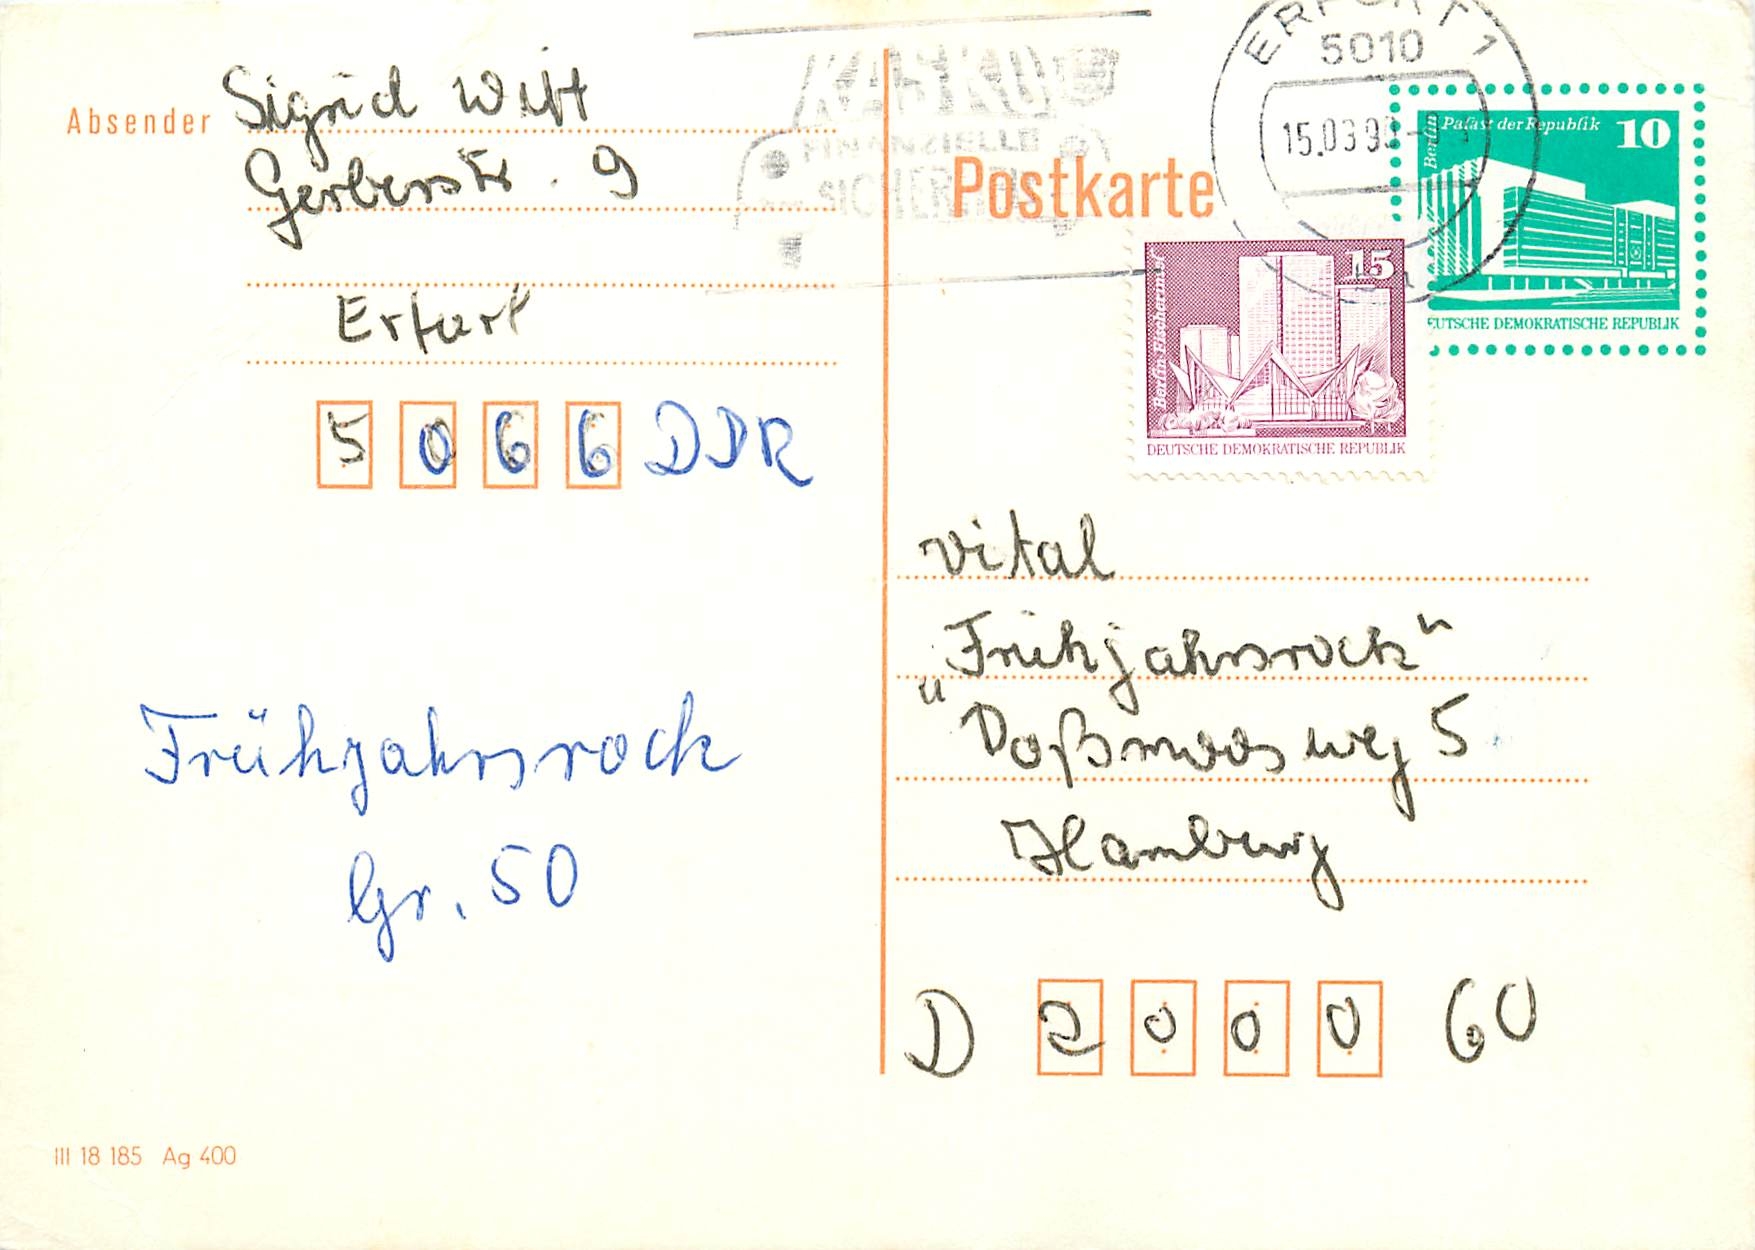 Absender Sigrid Witt
Gerberstr. 9
Erfurt
5066 DDR
Frühjahrsrock
Gr. 50
III 18 185 Ag 400
FINANZIELLE
ERFURT 1
5010
15.03.9
Postkarte
Berlin
Palast der Republik 10
DEUTSCHE DEMOKRATISCHE REPUBLIK
15
DEUTSCHE DEMOKRATISCHE REPUBLIK
vital
„Frühjahrsrock“
Doßmoosweg 5
Hamburg
D 2000 60